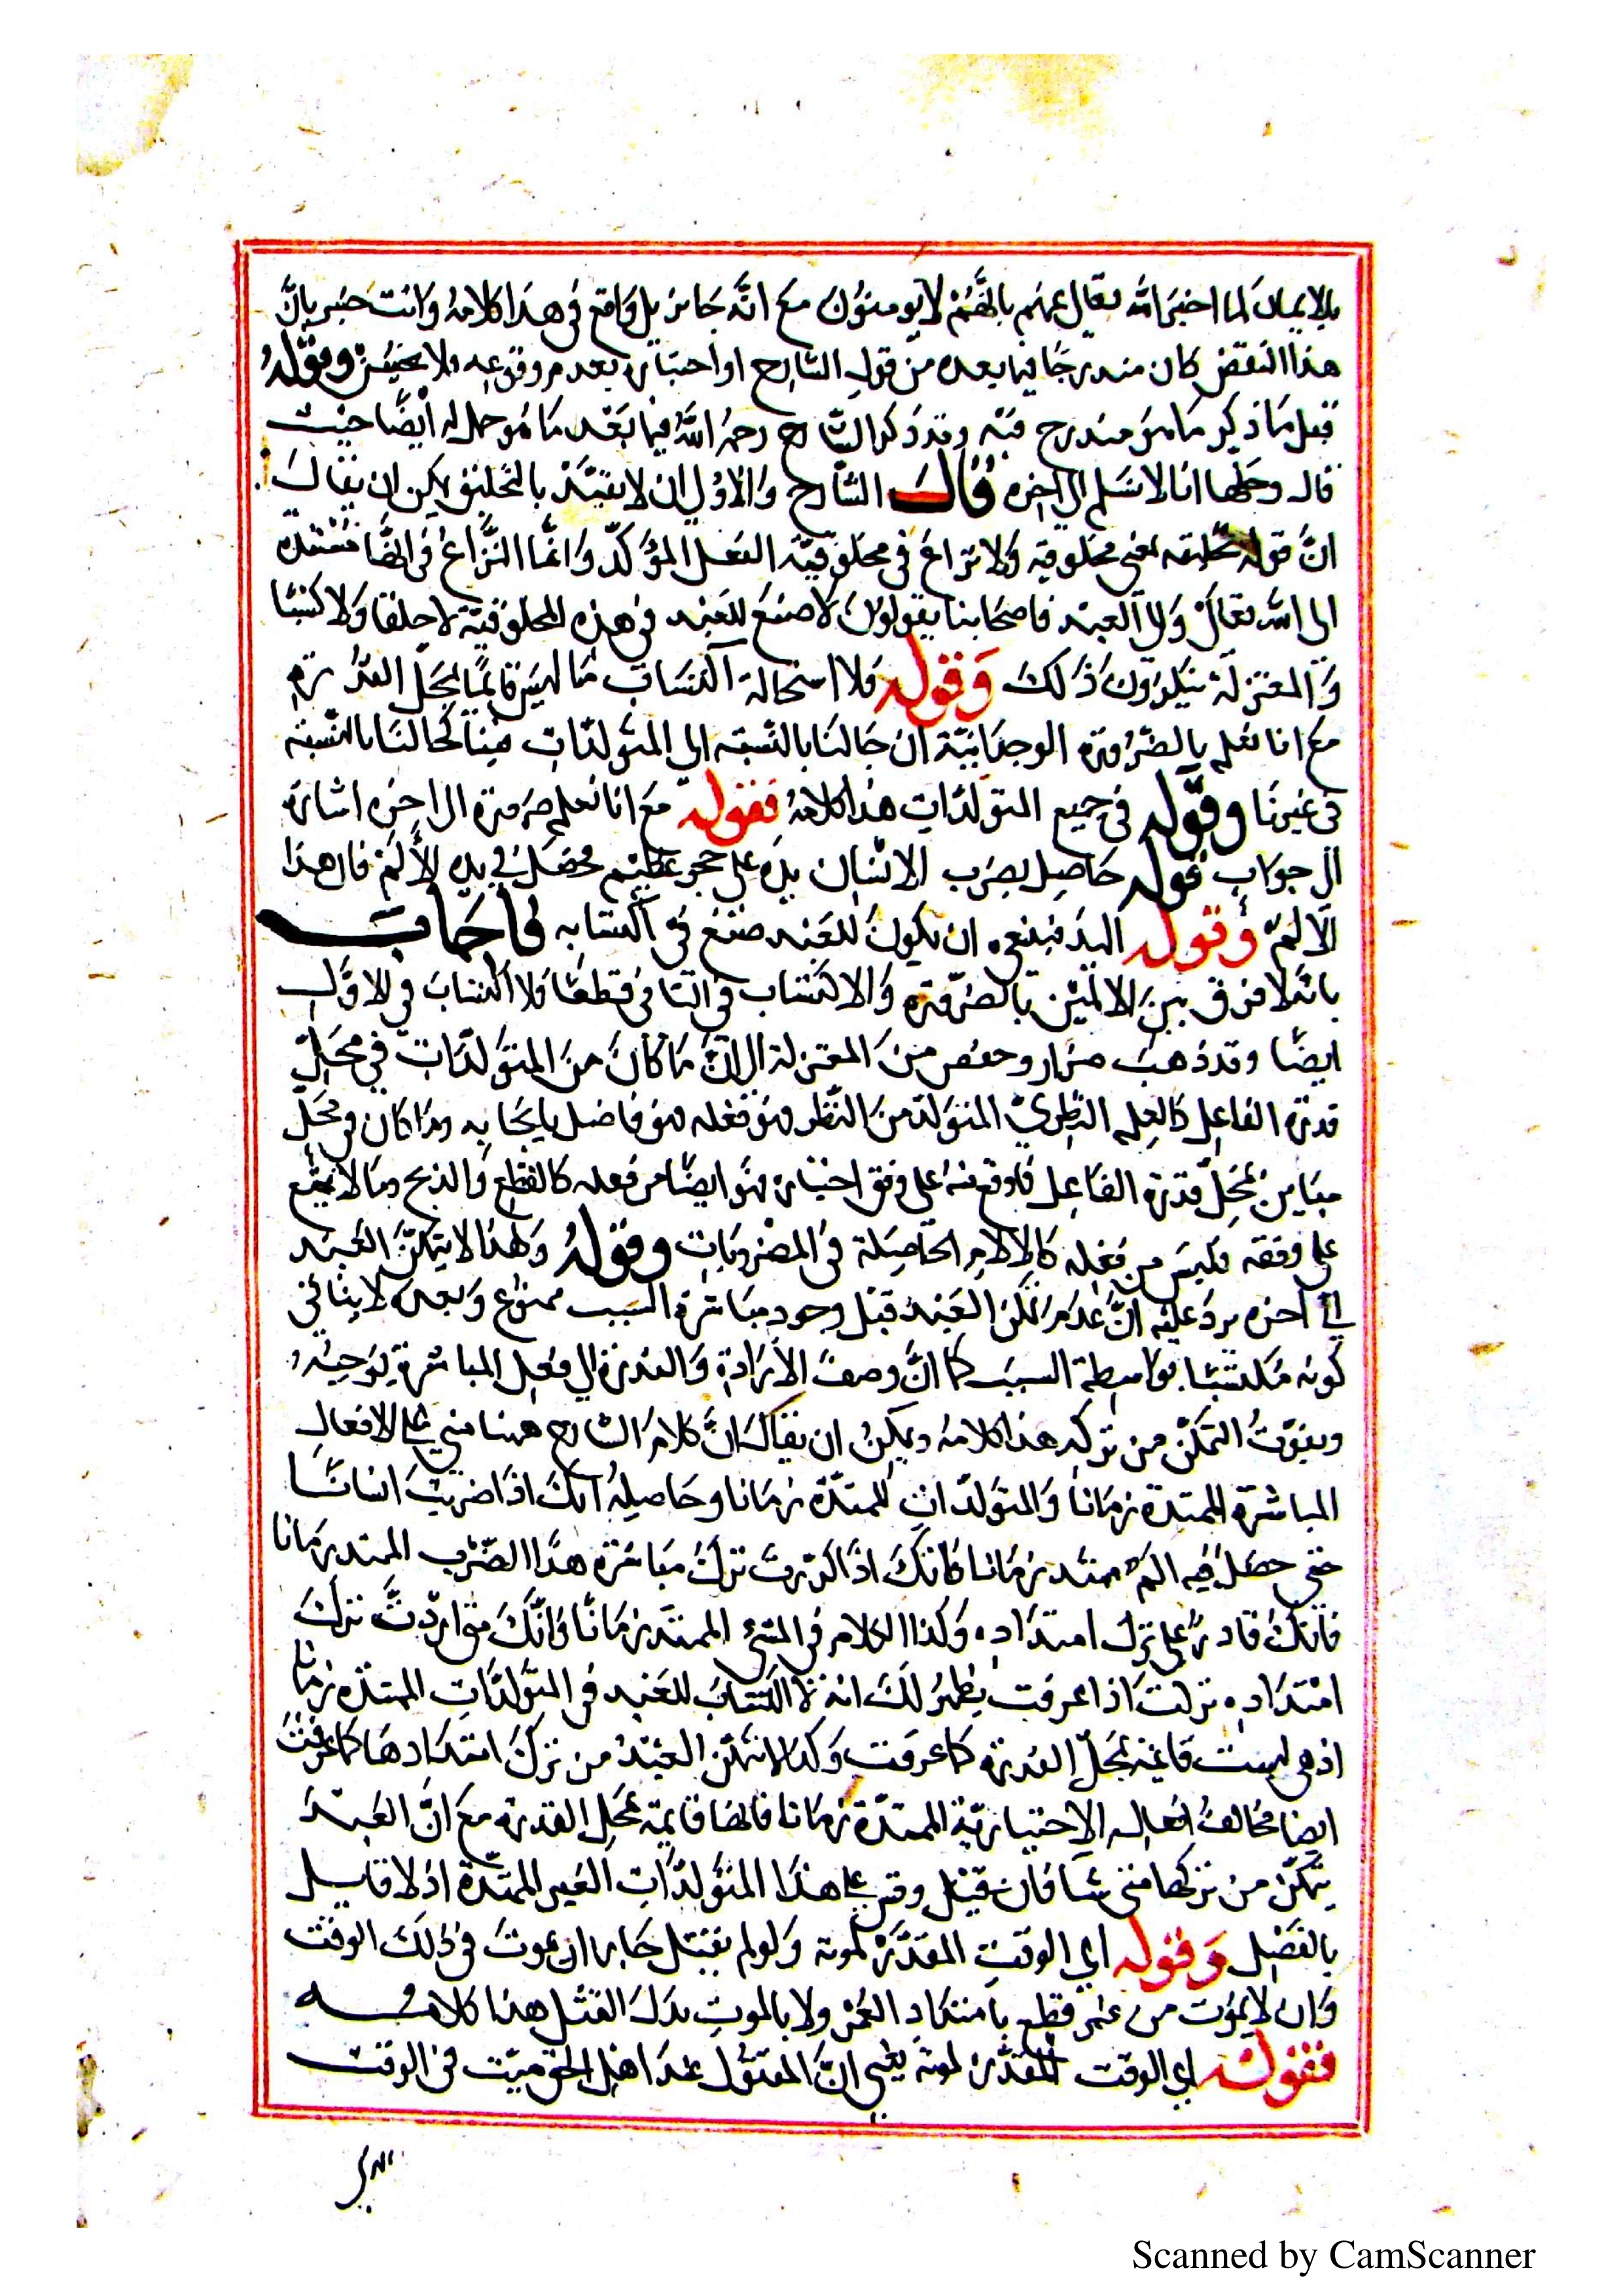 بالايمان لما اخبر الله تعالى عنهم بانهم لا يومنون مع انه جايز بل واقع في هذا كلامه وانت خبير بان
هذا النقض كان مندرجا فيما بعده من قول الشارح او اخباره بعدم وقوعه ولا يحسن وقوله
قبل ما ذكر ما هو مندرج فيه وقد ذكر الشارح رحمه الله فيما بعد ما هو حل له ايضا حيث
قال وحلها انا لا نسلم الى اخره قال الشارح والاولى ان لا نقيد بالتخليق يمكن ان يقال
ان قوله تخليقه بمعنى مخلوقيه ولا نزاع في مخلوقية الفعل المؤكد وانما النزاع في انها مستنده
الى الله تعالى والى العبد فاصحابنا يقولون لا صنع للعبد في هذه المخلوقية لا خلقا ولا كسبا
والمعتزلة ينكرون ذلك وقوله فلا استحالة اكتساب ما ليس قائما بمحل القدرة
مع انا نعلم بالضرورة الوجدانية ان حالنا بالنسبة الى المتولدات فينا كحالنا بالنسبة
في غيرنا وقوله في جميع المتولدات هذا كلامه فقوله مع انا نعلم ضرورة الى اخره اشارة
الى جواب قوله حاصل بضرب الانسان يده على حجر عظيم فحصل في يده الألم فان هذا
الالم وقوله اليد فينبغي ان يكون للعبد صنع في اكتسابه فاجاب
بانه لا فرق بين الالمين بالضرورة والاكتساب في الثاني قطعا فلا اكتساب في الاول
ايضا وقد ذهب ضرار وحفص من المعتزلة الى ان ما كان من المتولدات في محل
قدرة الفاعل كالعلم النظري المتولد من النظر فهو فعله فهو فاضل بايجابه وما كان في محل
مباين لمحل قدرة الفاعل فما وقع منه على وفق اختياره فهو ايضا من فعله كالقطع والذبح وما لا يقع
على وفقه فليس من فعله كالالام الحاصلة في المضروبات وقوله ولهذا لا يتمكن العبد
الى اخره يرد عليه ان عدم تمكن العبد قبل وجود مباشرة السبب ممنوع وبعده لا ينافي
كونه مكتسبا بواسطة السبب كما ان وصف الارادة والقدرة الى فعل المباشرة يوجبه
ويفوت التمكن من تركه هذا كلامه ويمكن ان يقال ان كلام الشارح ههنا مبني على الافعال
المباشرة الممتدة زمانا والمتولدات الممتدة زمانا وحاصله انك اذا ضربت انسانا
حتى حصل فيه الم ممتد زمانا فانك اذا اردت ترك مباشرة هذا الضرب الممتد زمانا
فانك قادر على ترك امتداده وكذا الكلام في المشي الممتد زمانا فانك متى اردت ترك
امتداده تركت اذا عرفت يظهر لك انه لا اكتساب للعبد في المتولدات الممتدة زمانا
اذ هي ليست قائمة بمحل القدرة كما عرفت وكذا لا يتمكن العبد من ترك امتدادها كما عرفت
ايضا مخالف افعاله الاختيارية الممتدة زمانا فانها قايمة بمحل القدرة مع ان العبد
يتمكن من تركها متى شا فان قيل وقس على هذا المتولدات الغير الممتدة اذ لا قايل
بالفصل وقوله اي الوقت المقدر لموته ولو لم يقتل جاز ان يموت في ذلك الوقت
وان لا يموت من غير قطع بامتداد العمر ولا بالموت بدل القتل هذا كلامه
فقوله اي الوقت المقدر لموته يعني ان المقتول عند اهل الحق ميت في الوقت
Scanned by CamScanner